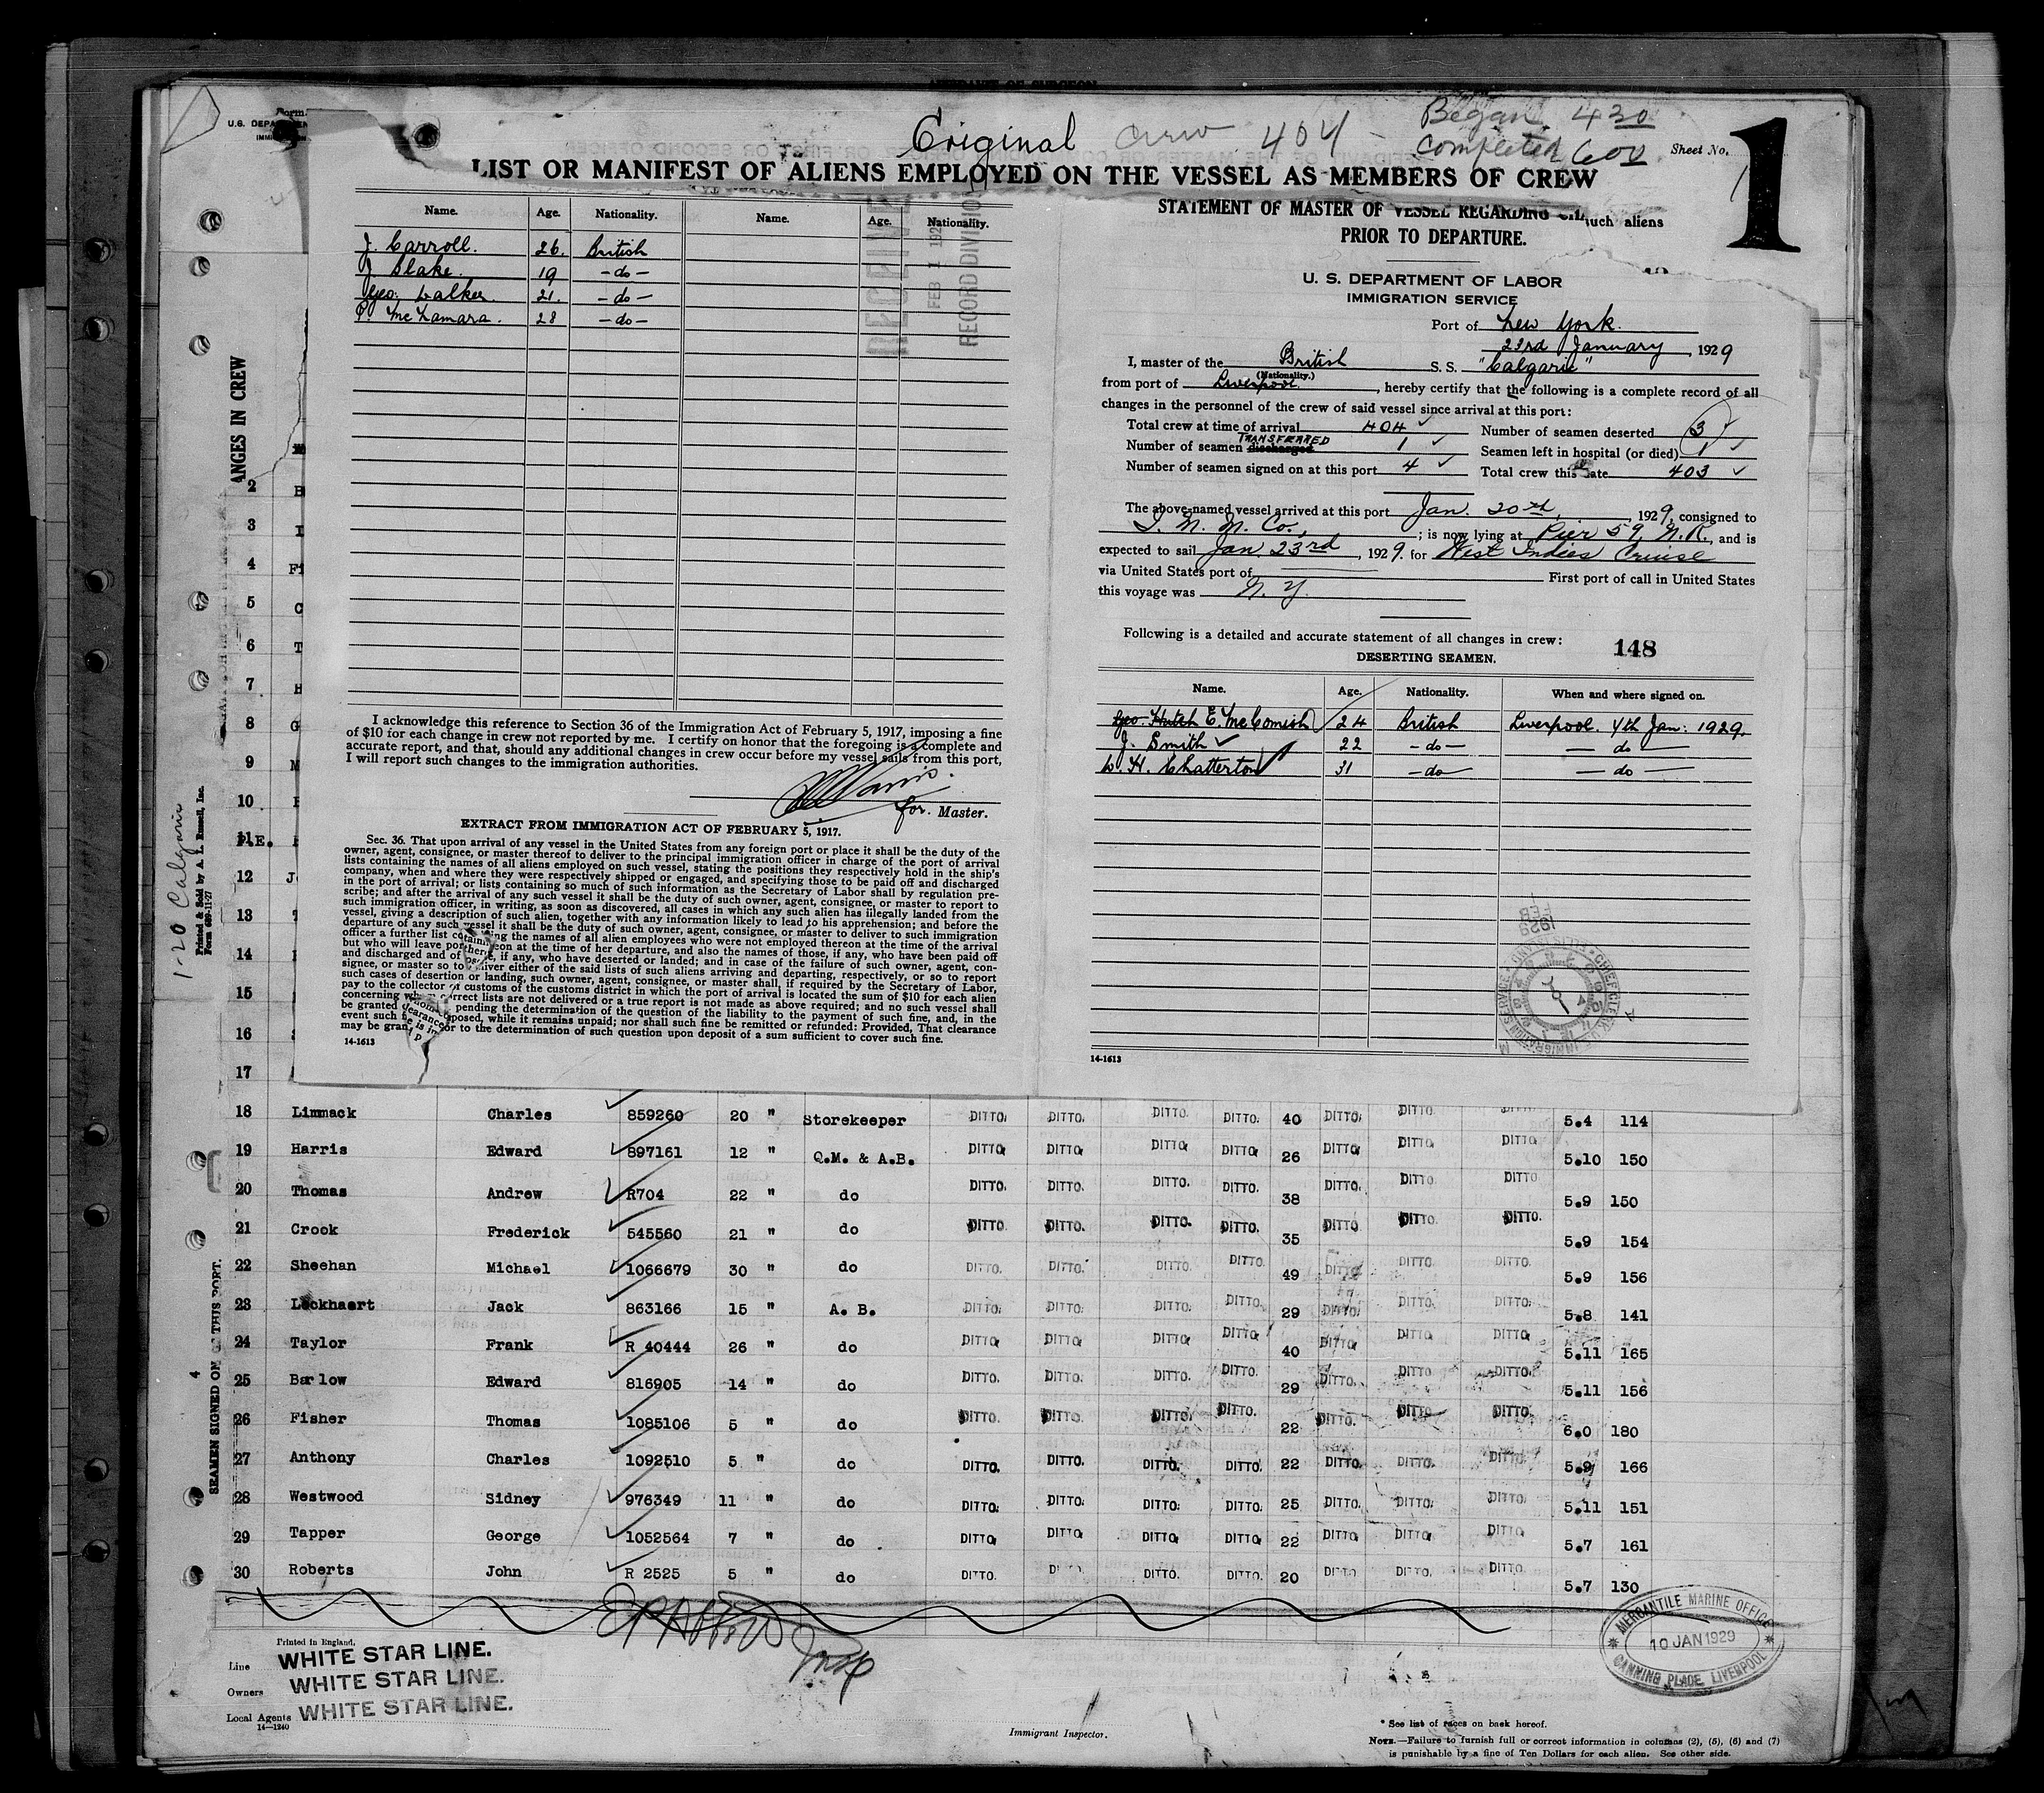 AFFIDAVIT OF SURGEON
Form
U.S. DEPARTMEN
IMMI
Original crew 404 - Began 4 30
completed 6 00 Sheet No. 1
LIST OR MANIFEST OF ALIENS EMPLOYED ON THE VESSEL AS MEMBERS OF CREW
such aliens
Name. Age. Nationality. Name. Age. Nationality.
J. Carroll. 26. British
J. Blake. 19 - do -
Geo. Walker. 21. - do -
P. McNamara. 28 - do -
RECEIVED
FEB 1 192
RECORD DIVISION
I acknowledge this reference to Section 36 of the Immigration Act of February 5, 1917, imposing a fine
of $10 for each change in crew not reported by me. I certify on honor that the foregoing is a complete and
accurate report, and that, should any additional changes in crew occur before my vessel sails from this port,
I will report such changes to the immigration authorities.
for. Master.
EXTRACT FROM IMMIGRATION ACT OF FEBRUARY 5, 1917.
Sec. 36. That upon arrival of any vessel in the United States from any foreign port or place it shall be the duty of the
owner, agent, consignee, or master thereof to deliver to the principal immigration officer in charge of the port of arrival
lists containing the names of all aliens employed on such vessel, stating the positions they respectively hold in the ship's
company, when and where they were respectively shipped or engaged, and specifying those to be paid off and discharged
in the port of arrival; or lists containing so much of such information as the Secretary of Labor shall by regulation pre-
scribe; and after the arrival of any such vessel it shall be the duty of such owner, agent, consignee, or master to report to
such immigration officer, in writing, as soon as discovered, all cases in which any such alien has illegally landed from the
vessel, giving a description of such alien, together with any information likely to lead to his apprehension; and before the
departure of any such vessel it shall be the duty of such owner, agent, consignee, or master to deliver to such immigration
officer a further list containing the names of all alien employees who were not employed thereon at the time of the arrival
but who will leave port thereon at the time of her departure, and also the names of those, if any, who have been paid off
and discharged and of those, if any, who have deserted or landed; and in case of the failure of such owner, agent, con-
signee, or master so to deliver either of the said lists of such aliens arriving and departing, respectively, or so to report
such cases of desertion or landing, such owner, agent, consignee, or master shall, if required by the Secretary of Labor,
pay to the collector of customs of the customs district in which the port of arrival is located the sum of $10 for each alien
concerning whom correct lists are not delivered or a true report is not made as above required; and no such vessel shall
be granted clearance pending the determination of the question of the liability to the payment of such fine, and, in the
event such fine is imposed, while it remains unpaid; nor shall such fine be remitted or refunded: Provided, That clearance
may be granted prior to the determination of such question upon deposit of a sum sufficient to cover such fine.
14-1613
STATEMENT OF MASTER OF VESSEL REGARDING CHA
PRIOR TO DEPARTURE.
U. S. DEPARTMENT OF LABOR
IMMIGRATION SERVICE
Port of New York.
23rd January, 1929
I, master of the British S. S. "Calgaric"
(Nationality.)
from port of Liverpool, hereby certify that the following is a complete record of all
changes in the personnel of the crew of said vessel since arrival at this port:
Total crew at time of arrival 404 Number of seamen deserted 3
TRANSFERRED
Number of seamen discharged 1 Seamen left in hospital (or died) 1
Number of seamen signed on at this port 4 Total crew this date 403
The above-named vessel arrived at this port Jan. 20th, 1929, consigned to
I. M. M. Co.; is now lying at Pier 59, N.R., and is
expected to sail Jan 23rd, 1929. for West Indies Cruise
via United States port of First port of call in United States
this voyage was N. Y.
Following is a detailed and accurate statement of all changes in crew: 148
DESERTING SEAMEN.
Name. Age. Nationality. When and where signed on.
Geo. Hutch E. McComish 24 British Liverpool. 4th Jan: 1929.
J. Smith 22 - do - - do -
W H. Chatterton 31 - do - - do -
1929
FEB
14-1613
ANGES IN CREW
2 B
3 I
4 Fi
5 C
6 T
7 H
8 G
9 M
10
11
P.E.
12 J
13 T
14
15
16
17
1-20 Calgaric
Printed & Sold by A. L. Russell, Inc.
Form 489-11-27
4 SEAMEN SIGNED ON AT THIS PORT.
18 Limmack Charles 859260 20 " Storekeeper DITTO. DITTO. DITTO. DITTO. 40 DITTO. DITTO. DITTO. 5.4 114
19 Harris Edward 897161 12 " Q.M. & A.B. DITTO DITTO DITTO DITTO 26 DITTO DITTO DITTO 5.10 150
20 Thomas Andrew R704 22 " do DITTO. DITTO. DITTO. DITTO. 38 DITTO. DITTO DITTO 5.9 150
21 Crook Frederick 545560 21 " do DITTO. DITTO. DITTO. DITTO. 35 DITTO DITTO. DITTO. 5.9 154
22 Sheehan Michael 1066679 30 " do DITTO. DITTO. DITTO. DITTO. 49 DITTO DITTO. DITTO. 5.9 156
23 Lockhaert Jack 863166 15 " A. B. DITTO. DITTO. DITTO. DITTO. 29 DITTO. DITTO. DITTO. 5.8 141
24 Taylor Frank R 40444 26 " do DITTO DITTO DITTO DITTO 40 DITTO DITTO DITTO 5.11 165
25 Barlow Edward 816905 14 " do DITTO. DITTO. DITTO. DITTO. 29 DITTO. DITTO. DITTO. 5.11 156
26 Fisher Thomas 1085106 5 " do DITTO. DITTO. DITTO. DITTO. 22 DITTO. DITTO. DITTO. 6.0 180
27 Anthony Charles 1092510 5 " do DITTO. DITTO. DITTO. DITTO. 22 DITTO. DITTO. DITTO. 5.9 166
28 Westwood Sidney 976349 11 " do DITTO. DITTO. DITTO. DITTO. 25 DITTO. DITTO. DITTO. 5.11 151
29 Tapper George 1052564 7 " do DITTO DITTO DITTO DITTO 22 DITTO DITTO DITTO 5.7 161
30 Roberts John R 2525 5 " do DITTO. DITTO. DITTO. 20 DITTO DITTO. DITTO. 5.7 130
Insp
Printed in England.
Line WHITE STAR LINE.
Owners WHITE STAR LINE.
Local Agents WHITE STAR LINE.
14-1240
Immigrant Inspector.
MERCANTILE MARINE OFFICE
10 JAN 1929
CANNING PLACE, LIVERPOOL
* See list of races on back hereof.
NOTE.—Failure to furnish full or correct information in columns (2), (5), (6) and (7)
is punishable by a fine of Ten Dollars for each alien. See other side.